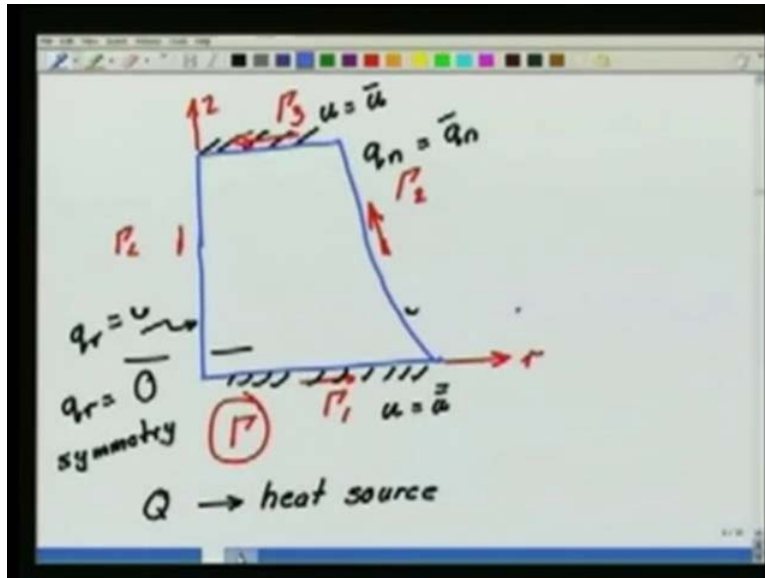 z
Γ3 u = ū
qn = q̄n
Γ2
Γ4
qr = 0
qr = 0
symmetry
r
Γ1 u = ū̄
Γ
Q → heat source